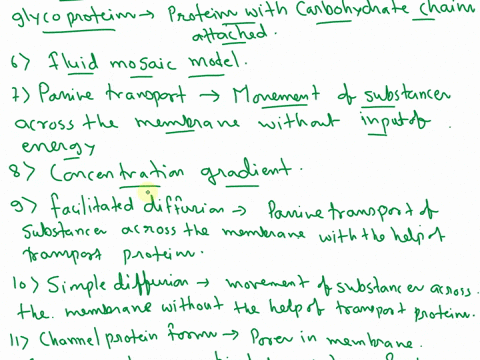 glycoprotein → Protein with Carbohydrate chain
attached.
6> fluid mosaic model.
7> Passive transport → Movement of substances
across the membrane without input of
energy
8> Concentration gradient.
9> facilitated diffusion → Passive transport of
substances across the membrane with the help of
transport protein.
10> Simple diffusion → movement of substances across
the membrane without the help of transport proteins.
11> Channel protein forms → Pores in membrane.